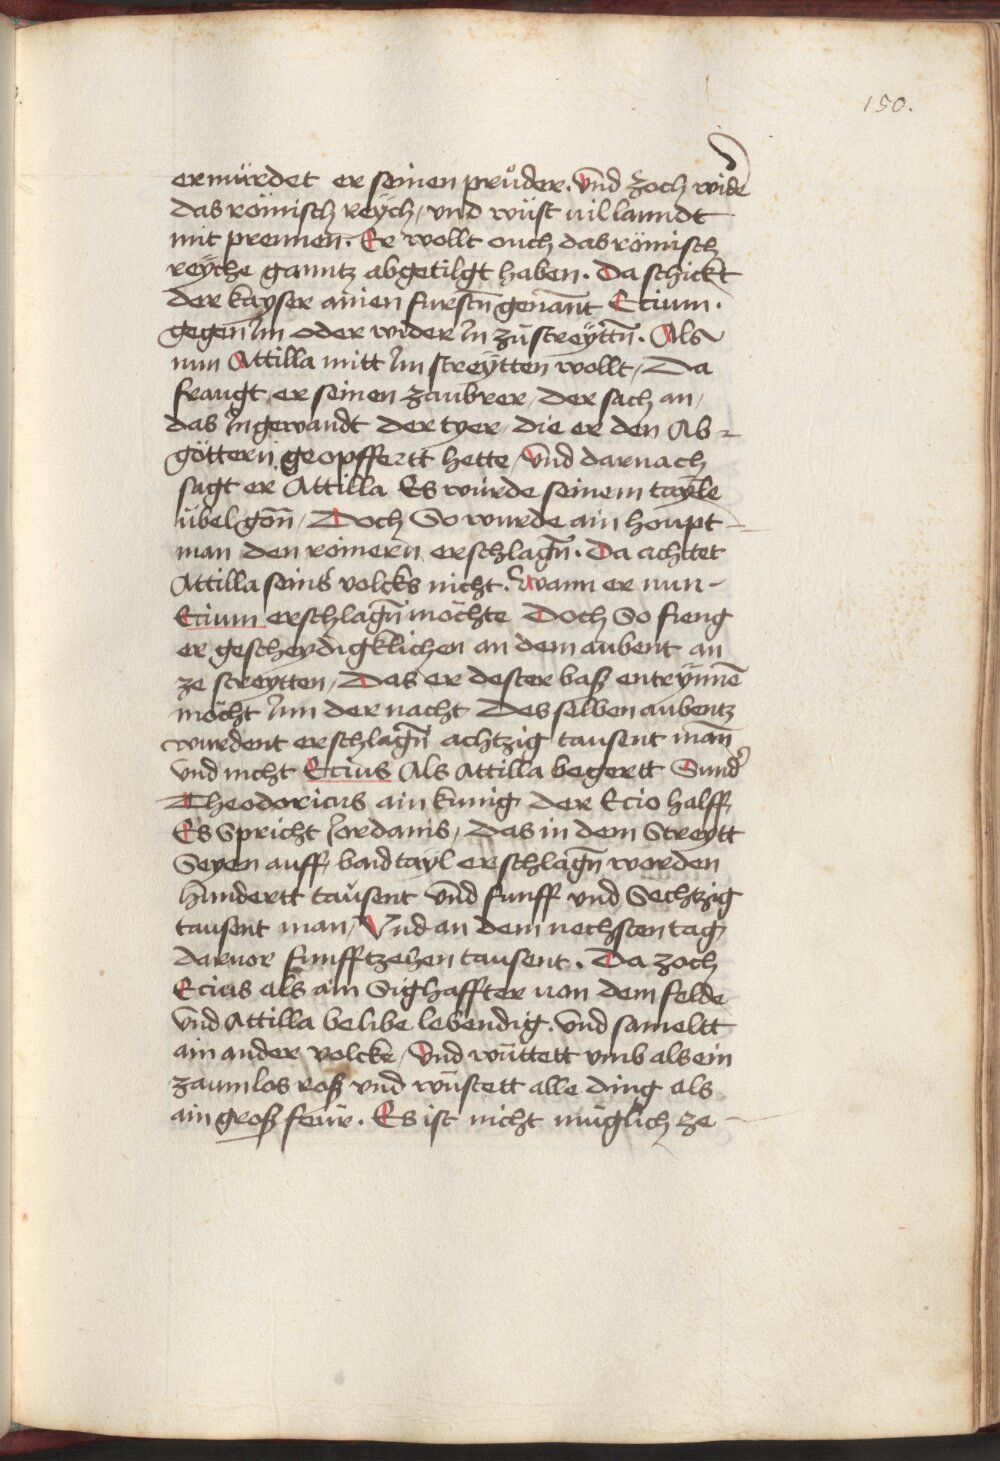 150.
ermürdet er seinen pruͦder. Vnd zoch wider
das römisch reÿch / vnd wüst uil lanndt
mit prennen. Er wollt ouch das römisch
reÿche ganntz abgetilgt haben. Da schickt
der kayser ainen fursten genant Ecium.
gegen Im oder wider In zuͦ streÿttn̄. Als
nun Attilla mitt Im streÿtten wollt / Da
fraugt er seinen zaubrer / der sach an /
das Ingewandt der tyer / die er den Ab=
göttern geopffertt hette / Vnd darnach
sagt er Attilla Es würde seinem tayle
übel gön̄ / Doch So wurde ain houpt=
man den römern erschlagn̄. Da achttet
Attilla seins volcks nicht. Wann er nun
Ecium erschlagn̄ möchte Doch So fieng
er gescheydigklichen an dem aubent an
ze streÿtten / Das er dester baß entrÿnne͞
möcht Inn der nacht Des selben aubentz
wurdent erschlagn̄ achtzig tausent man̄
vnd nicht Ecius Als Attilla begertt Sunder
Theodoricus ain kunig der Ecio halff
Es Spricht Jordanis / Das in dem Streytt
Seyen auff baid tayl erschlagn̄ worden
hundertt tausent vnd funff vnd Sechtzig
tausent man / Vnd an dem nechsten tag
daruor funfftzehen tausent. Da zoch
Ecius als ain Sighaffter uon dem felde
vnd Attilla belibe lebendig. Vnd sameltt
ain ander volcke / Vnd wüttett vmb als ein
zaumlos roß vnd wüstett alle ding als
ain groß feüir. Es ist nicht müglich ze